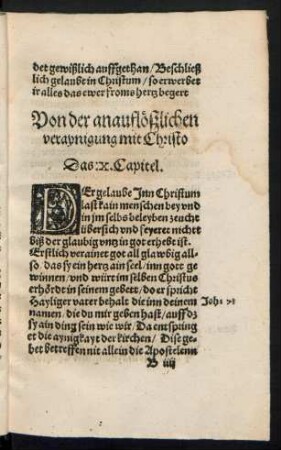 det gewißlich auffgethan / Beschließ
lich gelaube in Christum / so erwerbet
ir alles das ewer froms hertz begert
Von der anauflößlichen
veraynigung mit Christo
Das .x. Capitel.
DEr gelaube Jnn Christum
last kain menschen bey vnd
in jm selbs beleyben zeucht
übersich vnd feyret nichtt
biß der glaubig vnt in got erhebt ist.
Erstlich verainet got all glawbig all-
so das sy ein hertz ain seel / inn gott ge
winnen / vnd würt im selben Christus
erhördt in seinem gebett / do er spricht
Hayliger vater behalt die inn deinem Joh. 17
namen / die du mir geben hast / auff dz
sy ain ding sein wie wir. Da entspring
et die aynigkayt der kirchen / Dise ge-
bet betreffen nit allein die Apostelenn
B iiij